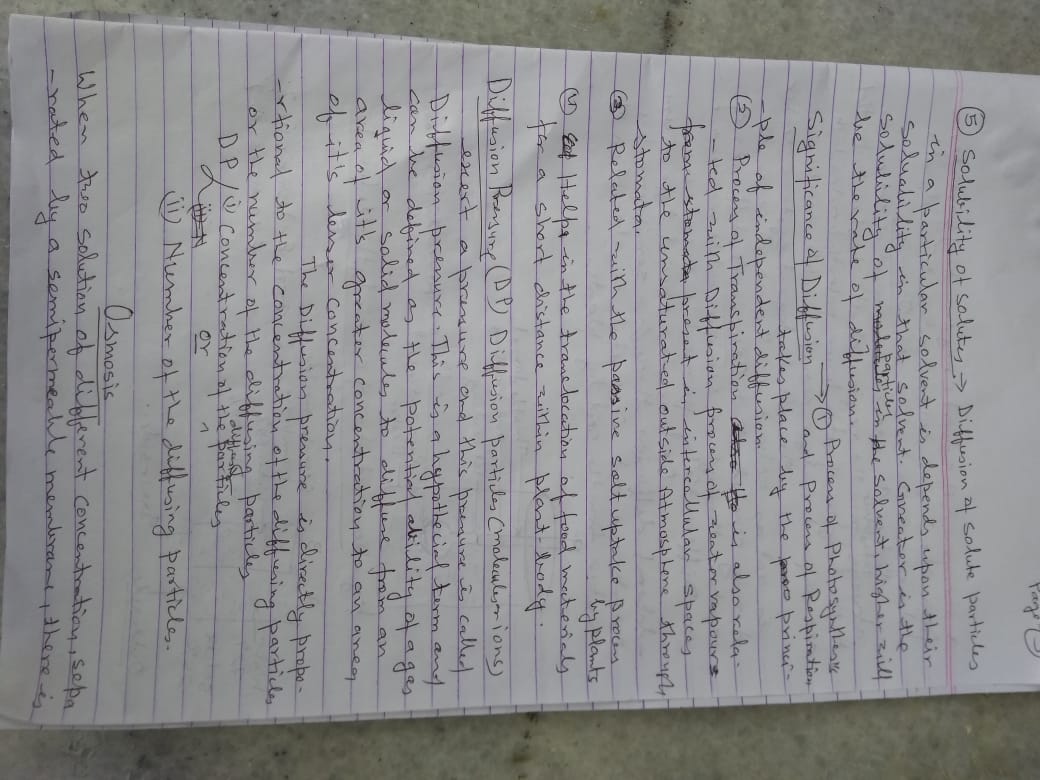 Page
⑤ Solubility of solutes → Diffusion of solute particles
in a particular solvent is depends upon their
solubility in that solvent. Greater is the
solubility of particles in the solvent, higher will
be the rate of diffusion.
Significance of Diffusion → ① Process of Photosynthesis
and Process of Respiration
takes place by the princi-
-ple of independent diffusion.
② Process of Transpiration is also rela-
-ted with Diffusion process of water vapours
present in intercellular spaces
to the unsaturated outside Atmosphere through
stomata.
③ Related with the passive salt uptake process
by plants
④ Helps in the translocation of food materials
for a short distance within plant-body.
Diffusion Pressure (DP) Diffusion particles (molecules or ions)
exert a pressure and this pressure is called
Diffusion pressure. This is a hypothecial term and
can be defined as the potential ability of a gas
liquid or solid molecules to diffuse from an
area of it's greater concentration to an area
of it's lesser concentration.
The Diffusion pressure is directly propo-
-rtional to the concentration of the diffusing particles
or the number of the diffusing particles
DP ∝ (i) Concentration of the particles
or
(ii) Number of the diffusing particles.
Osmosis
When two solution of different concentration, sepa
-rated by a semipermeable membrane, there is